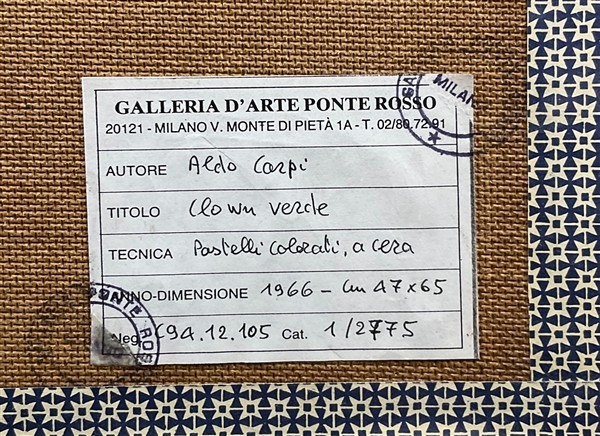 GALLERIA D'ARTE PONTE ROSSO
20121 - MILANO V. MONTE DI PIETÀ 1A - T. 02/80.72.91
AUTORE Aldo Carpi
TITOLO Clown verde
TECNICA Pastelli colorati, a cera
ANNO-DIMENSIONE 1966 - cm 47x65
Neg. 94.12.105 Cat. 1/2775
GA MILAN
PONTE RO